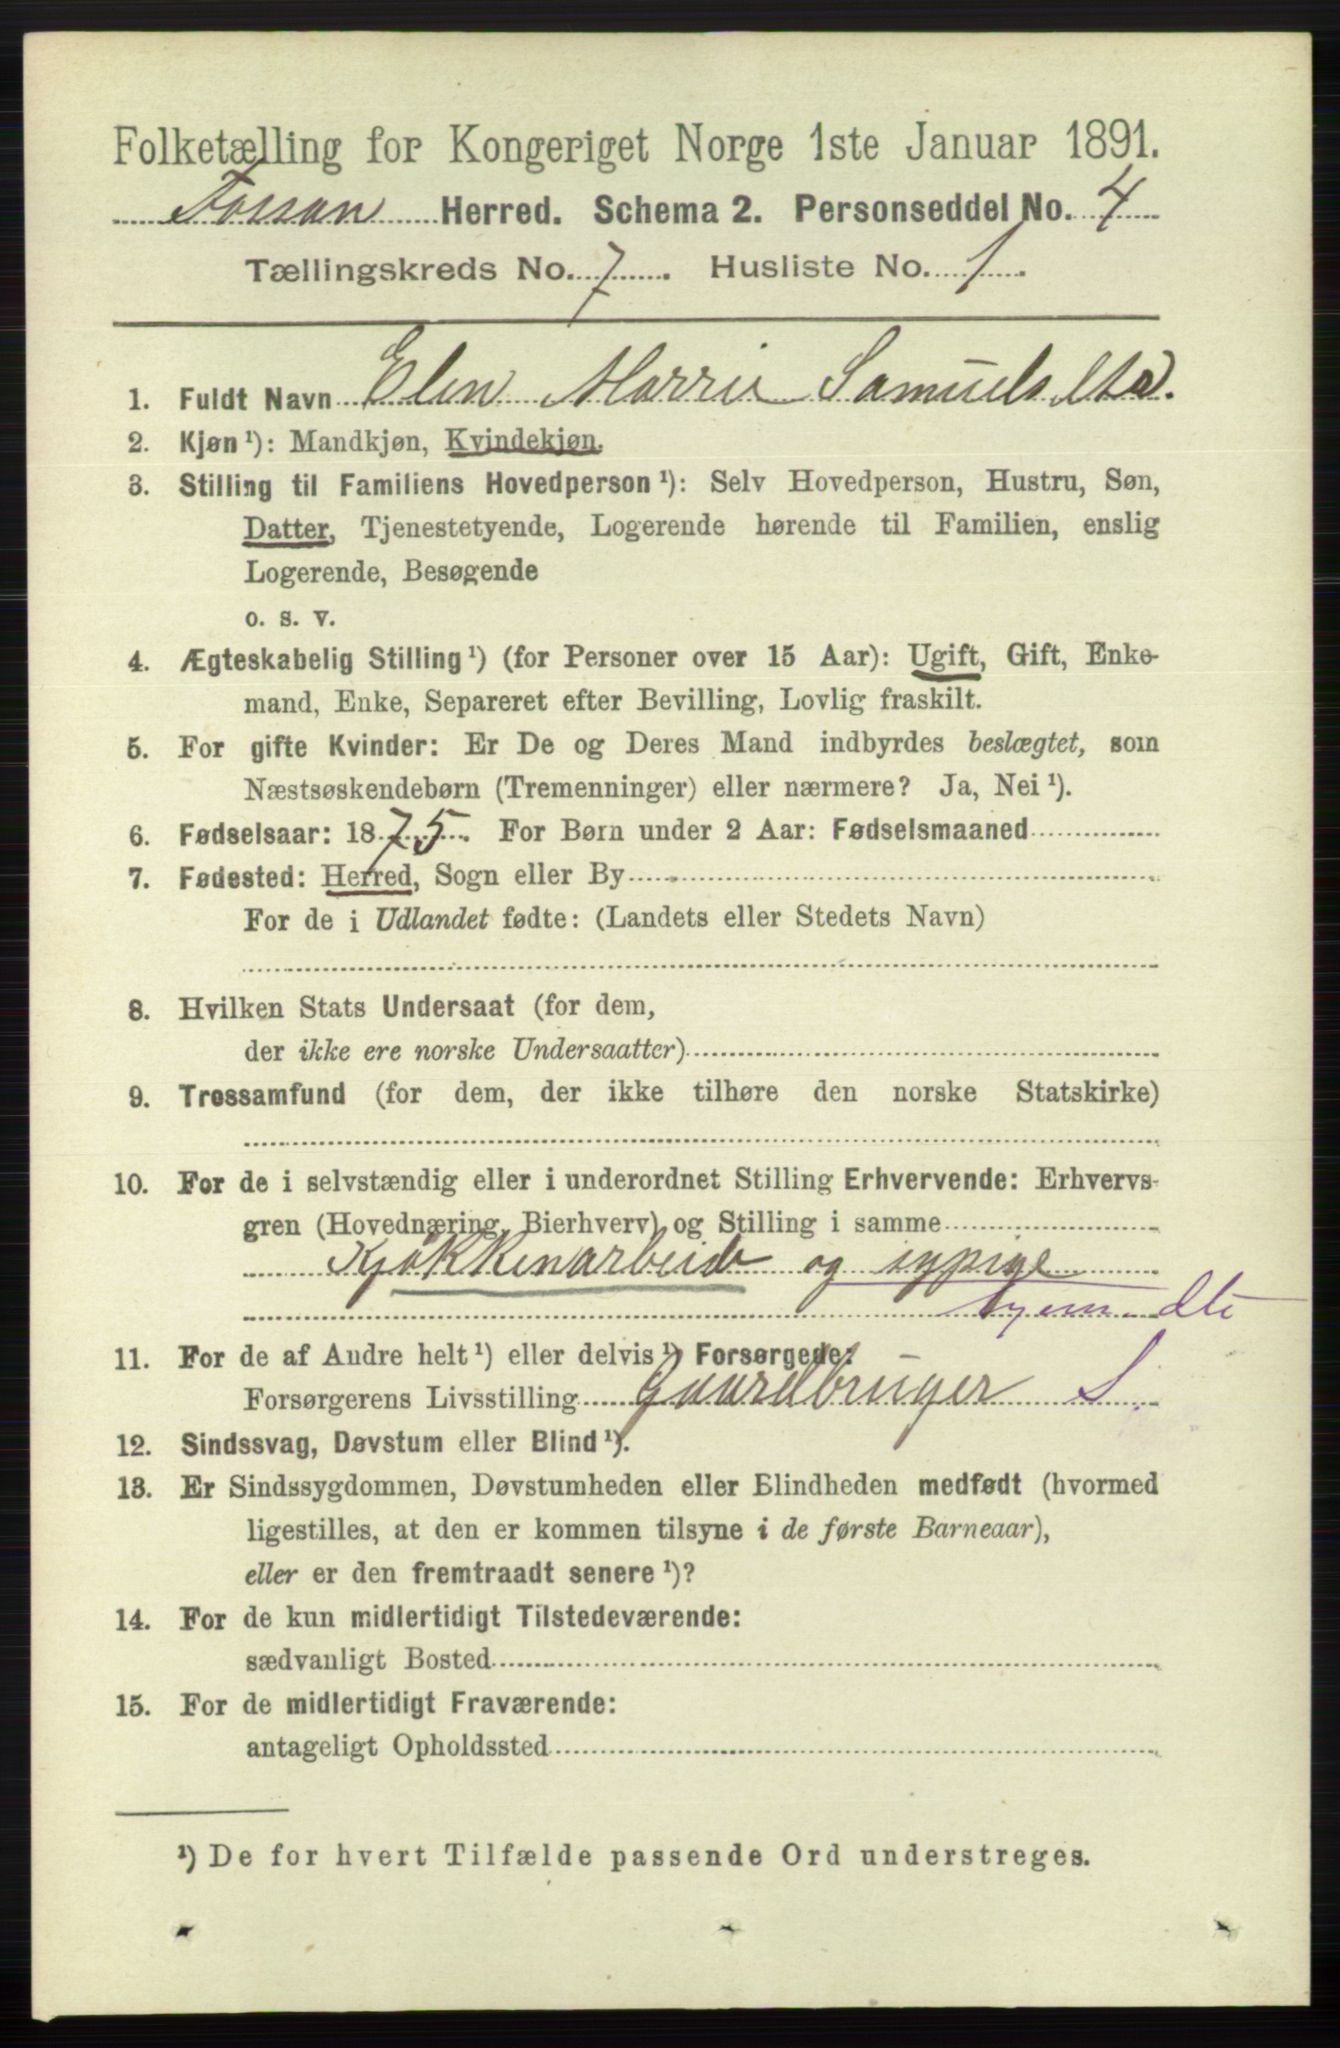 Folketælling for Kongeriget Norge 1ste Januar 1891.
Fossan Herred. Schema 2. Personseddel No. 4
Tællingskreds No. 7. Husliste No. 1.
1. Fuldt Navn Elen Marrie Samuelsdtr.
2. Kjøn ¹): Mandkjøn, Kvindekjøn.
3. Stilling til Familiens Hovedperson ¹): Selv Hovedperson, Hustru, Søn,
Datter, Tjenestetyende, Logerende hørende til Familien, enslig
Logerende, Besøgende
o. s. v.
4. Ægteskabelig Stilling ¹) (for Personer over 15 Aar): Ugift, Gift, Enke-
mand, Enke, Separeret efter Bevilling, Lovlig fraskilt.
5. For gifte Kvinder: Er De og Deres Mand indbyrdes beslægtet, som
Næstsøskendebørn (Tremenninger) eller nærmere? Ja, Nei ¹).
6. Fødselsaar: 1875. For Børn under 2 Aar: Fødselsmaaned
7. Fødested: Herred, Sogn eller By
For de i Udlandet fødte: (Landets eller Stedets Navn)
8. Hvilken Stats Undersaat (for dem,
der ikke ere norske Undersaatter)
9. Trossamfund (for dem, der ikke tilhøre den norske Statskirke)
10. For de i selvstændig eller i underordnet Stilling Erhvervende: Erhvervs-
gren (Hovednæring, Bierhverv) og Stilling i samme
Kjøkkenarbeide og sypige
hjem. dtr
11. For de af Andre helt ¹) eller delvis ¹) Forsørgede:
Forsørgerens Livsstilling Gaardbruger S.
12. Sindssvag, Døvstum eller Blind ¹).
13. Er Sindssygdommen, Døvstumheden eller Blindheden medfødt (hvormed
ligestilles, at den er kommen tilsyne i de første Barneaar),
eller er den fremtraadt senere ¹)?
14. For de kun midlertidigt Tilstedeværende:
sædvanligt Bosted
15. For de midlertidigt Fraværende:
antageligt Opholdssted
¹) De for hvert Tilfælde passende Ord understreges.